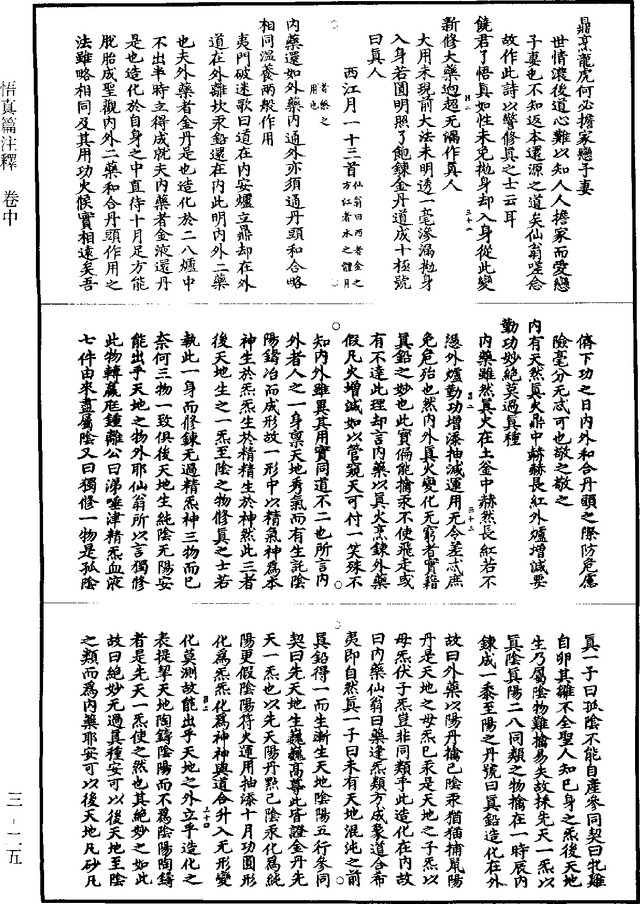 鼎烹龍虎何必擔家戀子妻
世情濃後道心難以知人人擔家而愛戀
子妻也不知返本還源之道矣仙翁嗟念
故作此詩以警修真之士云耳
饒君了悟真如性未免拋身却入身從此變
新修大藥迥超无漏作真人
大用未現前大法未明透一毫滲漏拋身
入身若圓明照了飽鍊金丹道成十極號
曰真人
西江月一十三首仙翁曰西者金之方江者水之體月者藥之用也
內藥還如外藥內通外亦須通丹頭和合略
相同溫養兩般作用
夷門破迷歌曰道在內安爐立鼎却在外
道在外離坎汞鉛還在內此明內外二藥
也夫外藥者金丹是也造化於二八爐中
不出半時立得成就夫內藥者金液還丹
是也造化於自身之中直待十月足方能
脫胎成聖觀內外二藥和合丹頭作用之
法雖略相同及其用功火候實相遠矣吾
儕下功之日內外和合丹頭之際防危慮
險毫分无忒可也敬之敬之
內有天然真火鼎中赫赫長紅外爐增減要
勤功妙絕莫過真種
內藥雖然真火在土釜中赫然長紅若不
慿外爐勤功增漆抽減運用无令差忒庶
免危殆也然內外真火變化无窮者實藉
真鉛之妙也此寶偏能擒汞不使飛走或
有不達此理却言內藥以真火烹鍊外藥
假凡火增減如以管窺天可付一笑殊不
知內外雖異其用實同道不二也所言內
外者人之一身稟天地秀氣而有生託陰
陽鑄冶而成形故一形中以精氣神為本
神生於炁炁生於精精生於神然此三者
後天地生之一炁至陰之物修真之士若
執此一身而修鍊无過精炁神三物而已
奈何三物一致俱後天地生純陰无陽安
能出乎天地之物外耶仙翁所以言獨修
此物轉羸尫鍾離公曰涕唾津精炁血液
七件由來盡屬陰又曰獨修一物是孤陰
真一子曰孤陰不能自產參同契曰牝雞
自卵其雛不全聖人知已身之炁後天地
生乃屬陰物難擒易失故採先天一炁以
真陰真陽二八同類之物擒在一時辰內
鍊成一黍至陽之丹號曰真鉛造化在外
故曰外藥以陽丹擒己陰汞猶猫捕鼠陽
丹是天地之母炁已汞是天地之子炁以
母炁伏子炁豈非同類乎此造化在內故
曰內藥仙翁曰藥逢炁類方成象道合希
夷即自然真一子曰未有天地混沌之前
真鉛得一而生漸生天地陰陽五行參同
契曰先天地生巍巍高尊此皆證金丹先
天一炁也以先天陽丹㸃己陰汞化為純
陽更假陰陽符火運用抽漆十月功圓形
化為炁炁化為神神與道合升入无形變
化莫測故能出乎天地之外立乎造化之
表提挈天地陶鑄陰陽而不為陰陽陶鑄
者是先天一炁使之然也其絕妙之如此
故曰絕妙无過真種安可以後天地至陰
之類而為內藥耶安可以後天地凡砂凡
悟真篇注釋　卷中
三－一一五